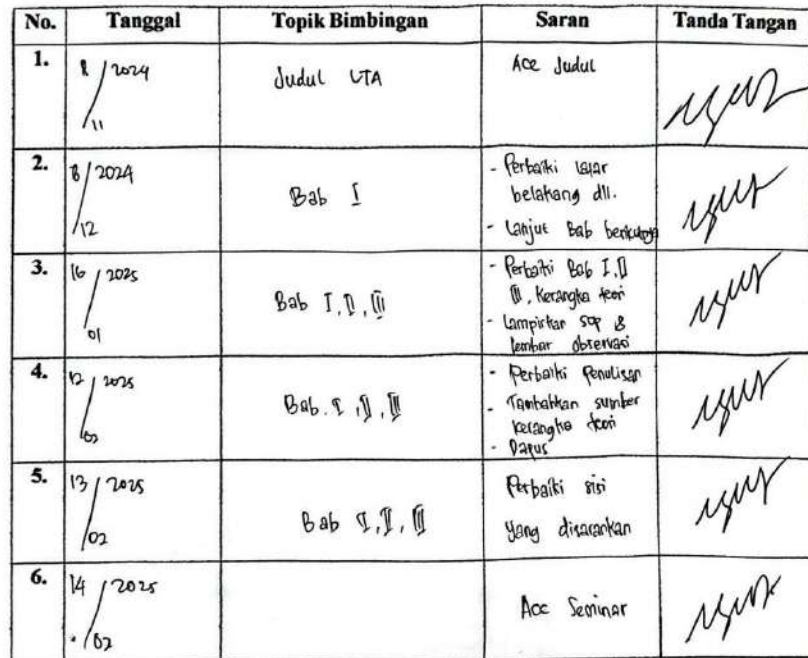 No. Tanggal Topik Bimbingan Saran Tanda Tangan
1. 8/11 2024 Judul LTA Acc Judul
2. 8/12 2024 Bab I - Perbaiki latar
belakang dll.
- Lanjut Bab berikutnya
3. 16/01 2025 Bab I, II, III - Perbaiki Bab I, II
III, Kerangka teori
- Lampirkan SOP &
lembar observasi
4. 12/02 2025 Bab. I, II, III - Perbaiki Penulisan
- Tambahkan sumber
kerangka teori
- Dapus
5. 13/02 2025 Bab I, II, III Perbaiki sisi
yang disarankan
6. 14/02 2025 Acc Seminar